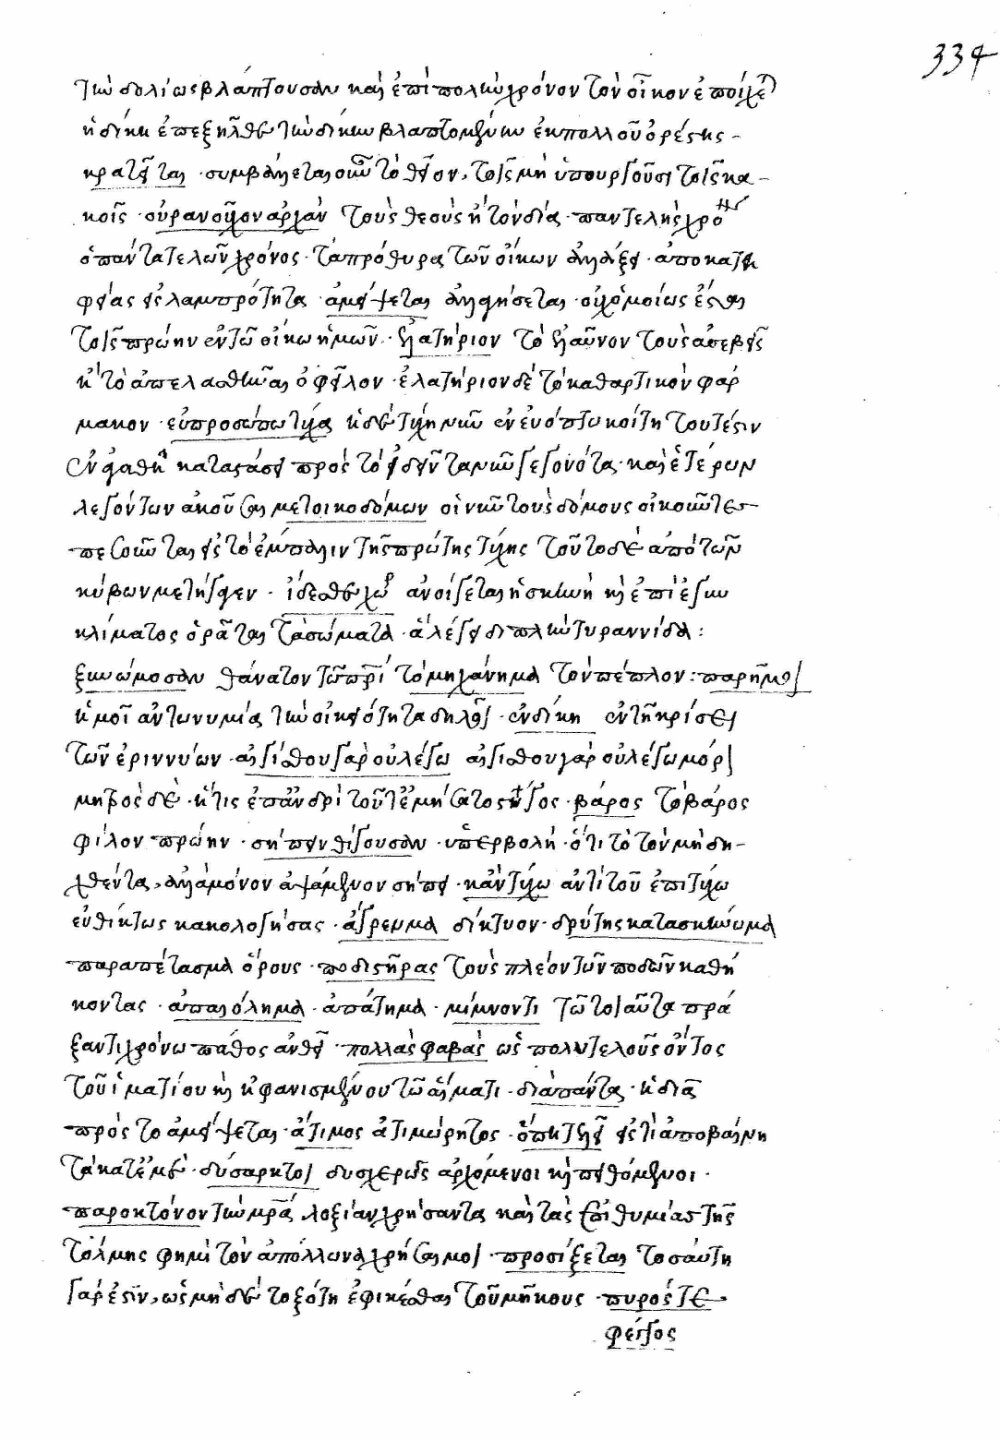 334
τὴν δολίως βλάπτουσαν καὶ ἐπὶ πολὺν χρόνον τὸν οἶκον
ἡ δίκη ἐπεξῆλθε τὴν δίκην βλαπτομένην ἐκ πολλοῦ ὀρέστης -
κρατεῖται · συμβάλλεται οὖν τὸ θεῖον, τοῖς μὴ ὑπουργοῦσι τοῖς κα -
κοῖς · οὐρανοῦχον ἀρχὰν τοὺς θεοὺς ἢ τὸν δία · παντελὴς χρό
ὁ πάντα τελῶν χρόνος · τὰ πρόθυρα τῶν οἴκων ἀποκατ
εἰς λαμπρότητα · ἀμείψεται
τοῖς πρώην ἐν τῶ οἴκω ἡμῶν · ἐλατήριον τὸ ἐλαῦνον τοὺς ἀσεβεῖς
κ τὸ ἀπελασθῆναι ὀφεῖλον · ἐλατήριον δὲ τὸ καθαρτικὸν φάρ
μακον · εὐπροσώπω τύχα ἡ δὲ τύχη νῦν ἐν εὐόπτω κοίτη τουτέστιν
ἐν ἀγαθῆ καταστάσει πρὸς τὸ ἰδεῖν τὰ νῦν γεγονότα · καὶ ἑτέρων
λεγόντων ἀκοῦσαι μετοικοδόμων οἱ νῦν τοὺς δόμους οἰκοῦντες -
πεσοῦνται εἰς τὸ ἔμπαλιν τῆς πρώτης τύχης τοῦτο δὲ ἀπὸ τῶν
κύβων μετήγαγεν · ἴδεσθε χώρ ἀνοίγεται ἡ σκηνὴ κ ἐπὶ
κλίματος ὁρᾶται τὰ σώματα · ἃ λέγει διπλῆν τυραννίδα :
ξυνώμοσαν θάνατον τῶ πρι τὸ μηχάνημα τὸν πέπλον : παρῆ μοι
ἡ μοὶ ἀντωνυμία τὴν οἰκειότητα δηλοῖ · ἐν δίκη ἐν τῆ κρίσει
τῶν ἐριννύων · αἰγίσθου γὰρ οὐ λέγω αἰγίσθου γὰρ οὐ λέγω μόρ
μητρὸς δὲ · ἥτις ἐπ' ἀνδρὶ τοῦτ' ἐμήσατο στύγος · βάρος τὸ βάρος
φίλον πρώην · σήπειν θιγοῦσαν · ὑπερβολὴ · ὅτι τὸ τὸν μὴ δη -
χθέντα, ἀλλὰ μόνον ἁψάμενον σήπει · κἂν τύχω ἀντὶ τοῦ ἐπιτύχω
εὐθίκτως κακολογήσας · ἄγρευμα δίκτυον · δροίτης κατασκήνωμα
παραπέτασμα ὅρους · ποδιστῆρας τοὺς πλέον τῶν ποδῶν καθή
κοντας · ἀπαιόλημα · ἀπάτημα · μίμνοντι τῶ τοιαῦτα πρά
ξαντι χρόνω πάθος ἀνθεῖ · πολλὰς βαφὰς ὡς πολυτελοῦς ὄντος
τοῦ ἱματίου κ ἠφανισμένου τῶ αἵματι · διὰ πάντα · ἡ διὰ
πρὸς τὸ ἀμείψεται · ἄτιμος ἀτιμώρητος · ὅπη τελεῖ εἰς τί ἀποβαίνει
τὰ κατ' ἐμὲ · δύσαρκτοι δυσχερῶς ἀρχόμενοι κ πειθόμενοι ·
παροκτόνον τὴν μρα λοξίαν χρήσαντα καὶ τὰς ἐπιθυμίας τῆς
τόλμης φημὶ τὸν ἀπόλλωνα χρῆσαί μοι · προσίξεται τοσαύτη
γάρ ἐστιν, ὡς μηδὲ τοξότη ἐφικέσθαι τοῦ μήκους · πυρός τε
φέγγος